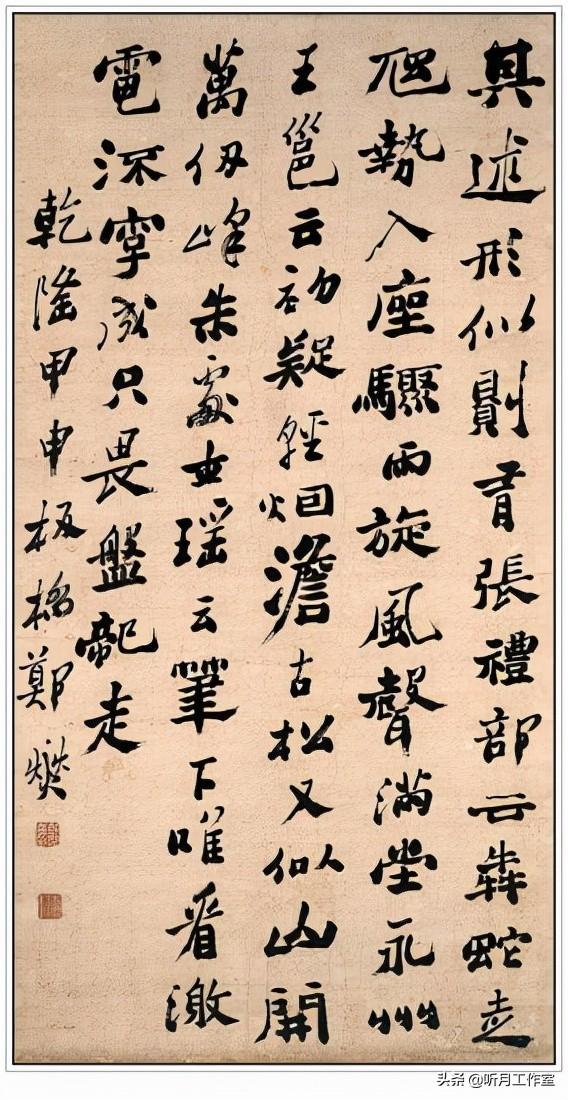 其述形似則有張禮部云犇蛇走
虺勢入座驟雨旋風聲滿堂永州
王邕云初疑輕烟澹古松又似山開
萬仞峰朱處士瑶云筆下唯看激
電流字成只畏盤龍走
乾隆甲申板橋鄭燮
头条 @听月工作室